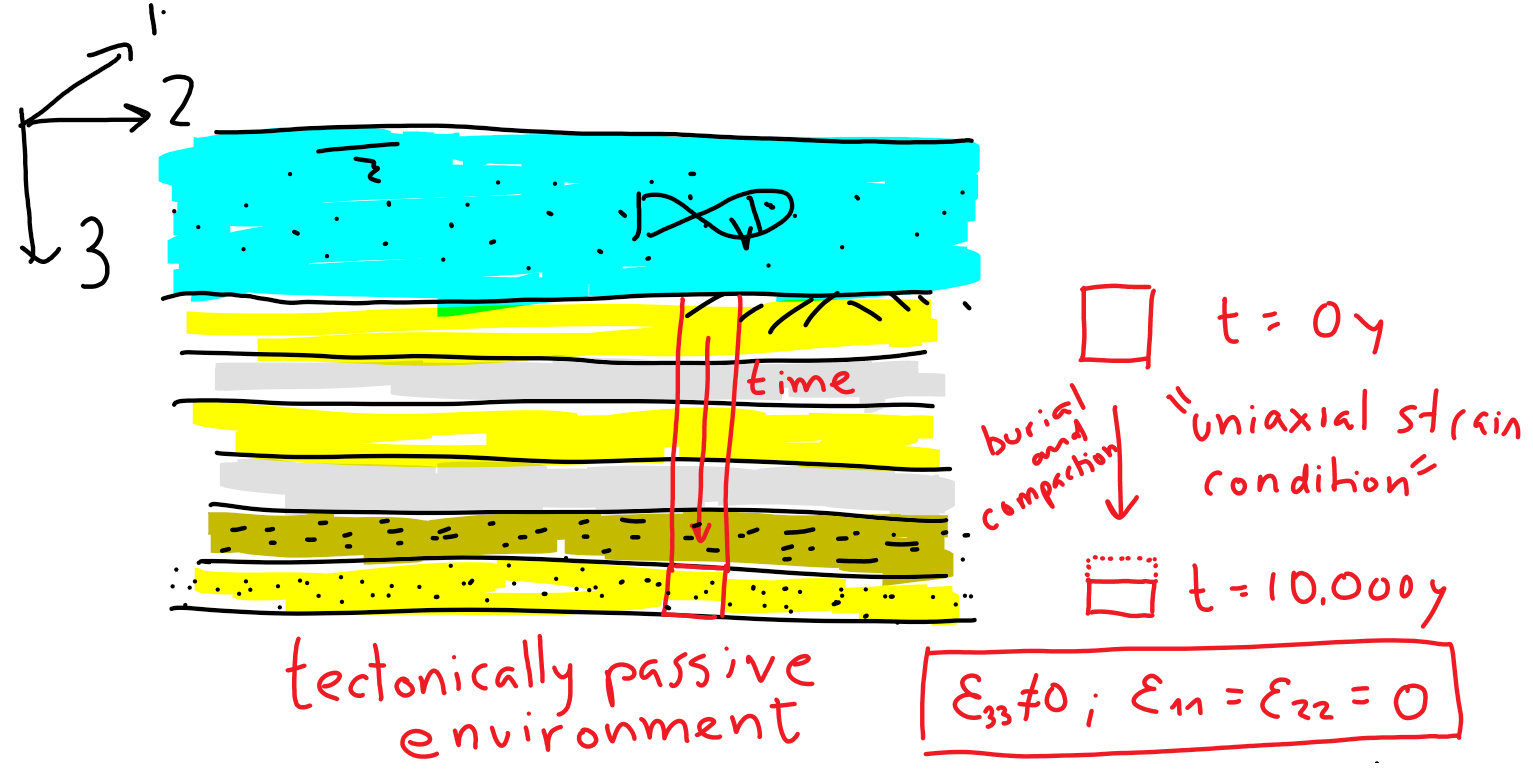 1
2
3
time
t = 0y
burial
and
compaction
"uniaxial strain
condition"
t = 10.000y
tectonically passive
environment
ε₃₃≠0 ; ε₁₁ = ε₂₂ = 0